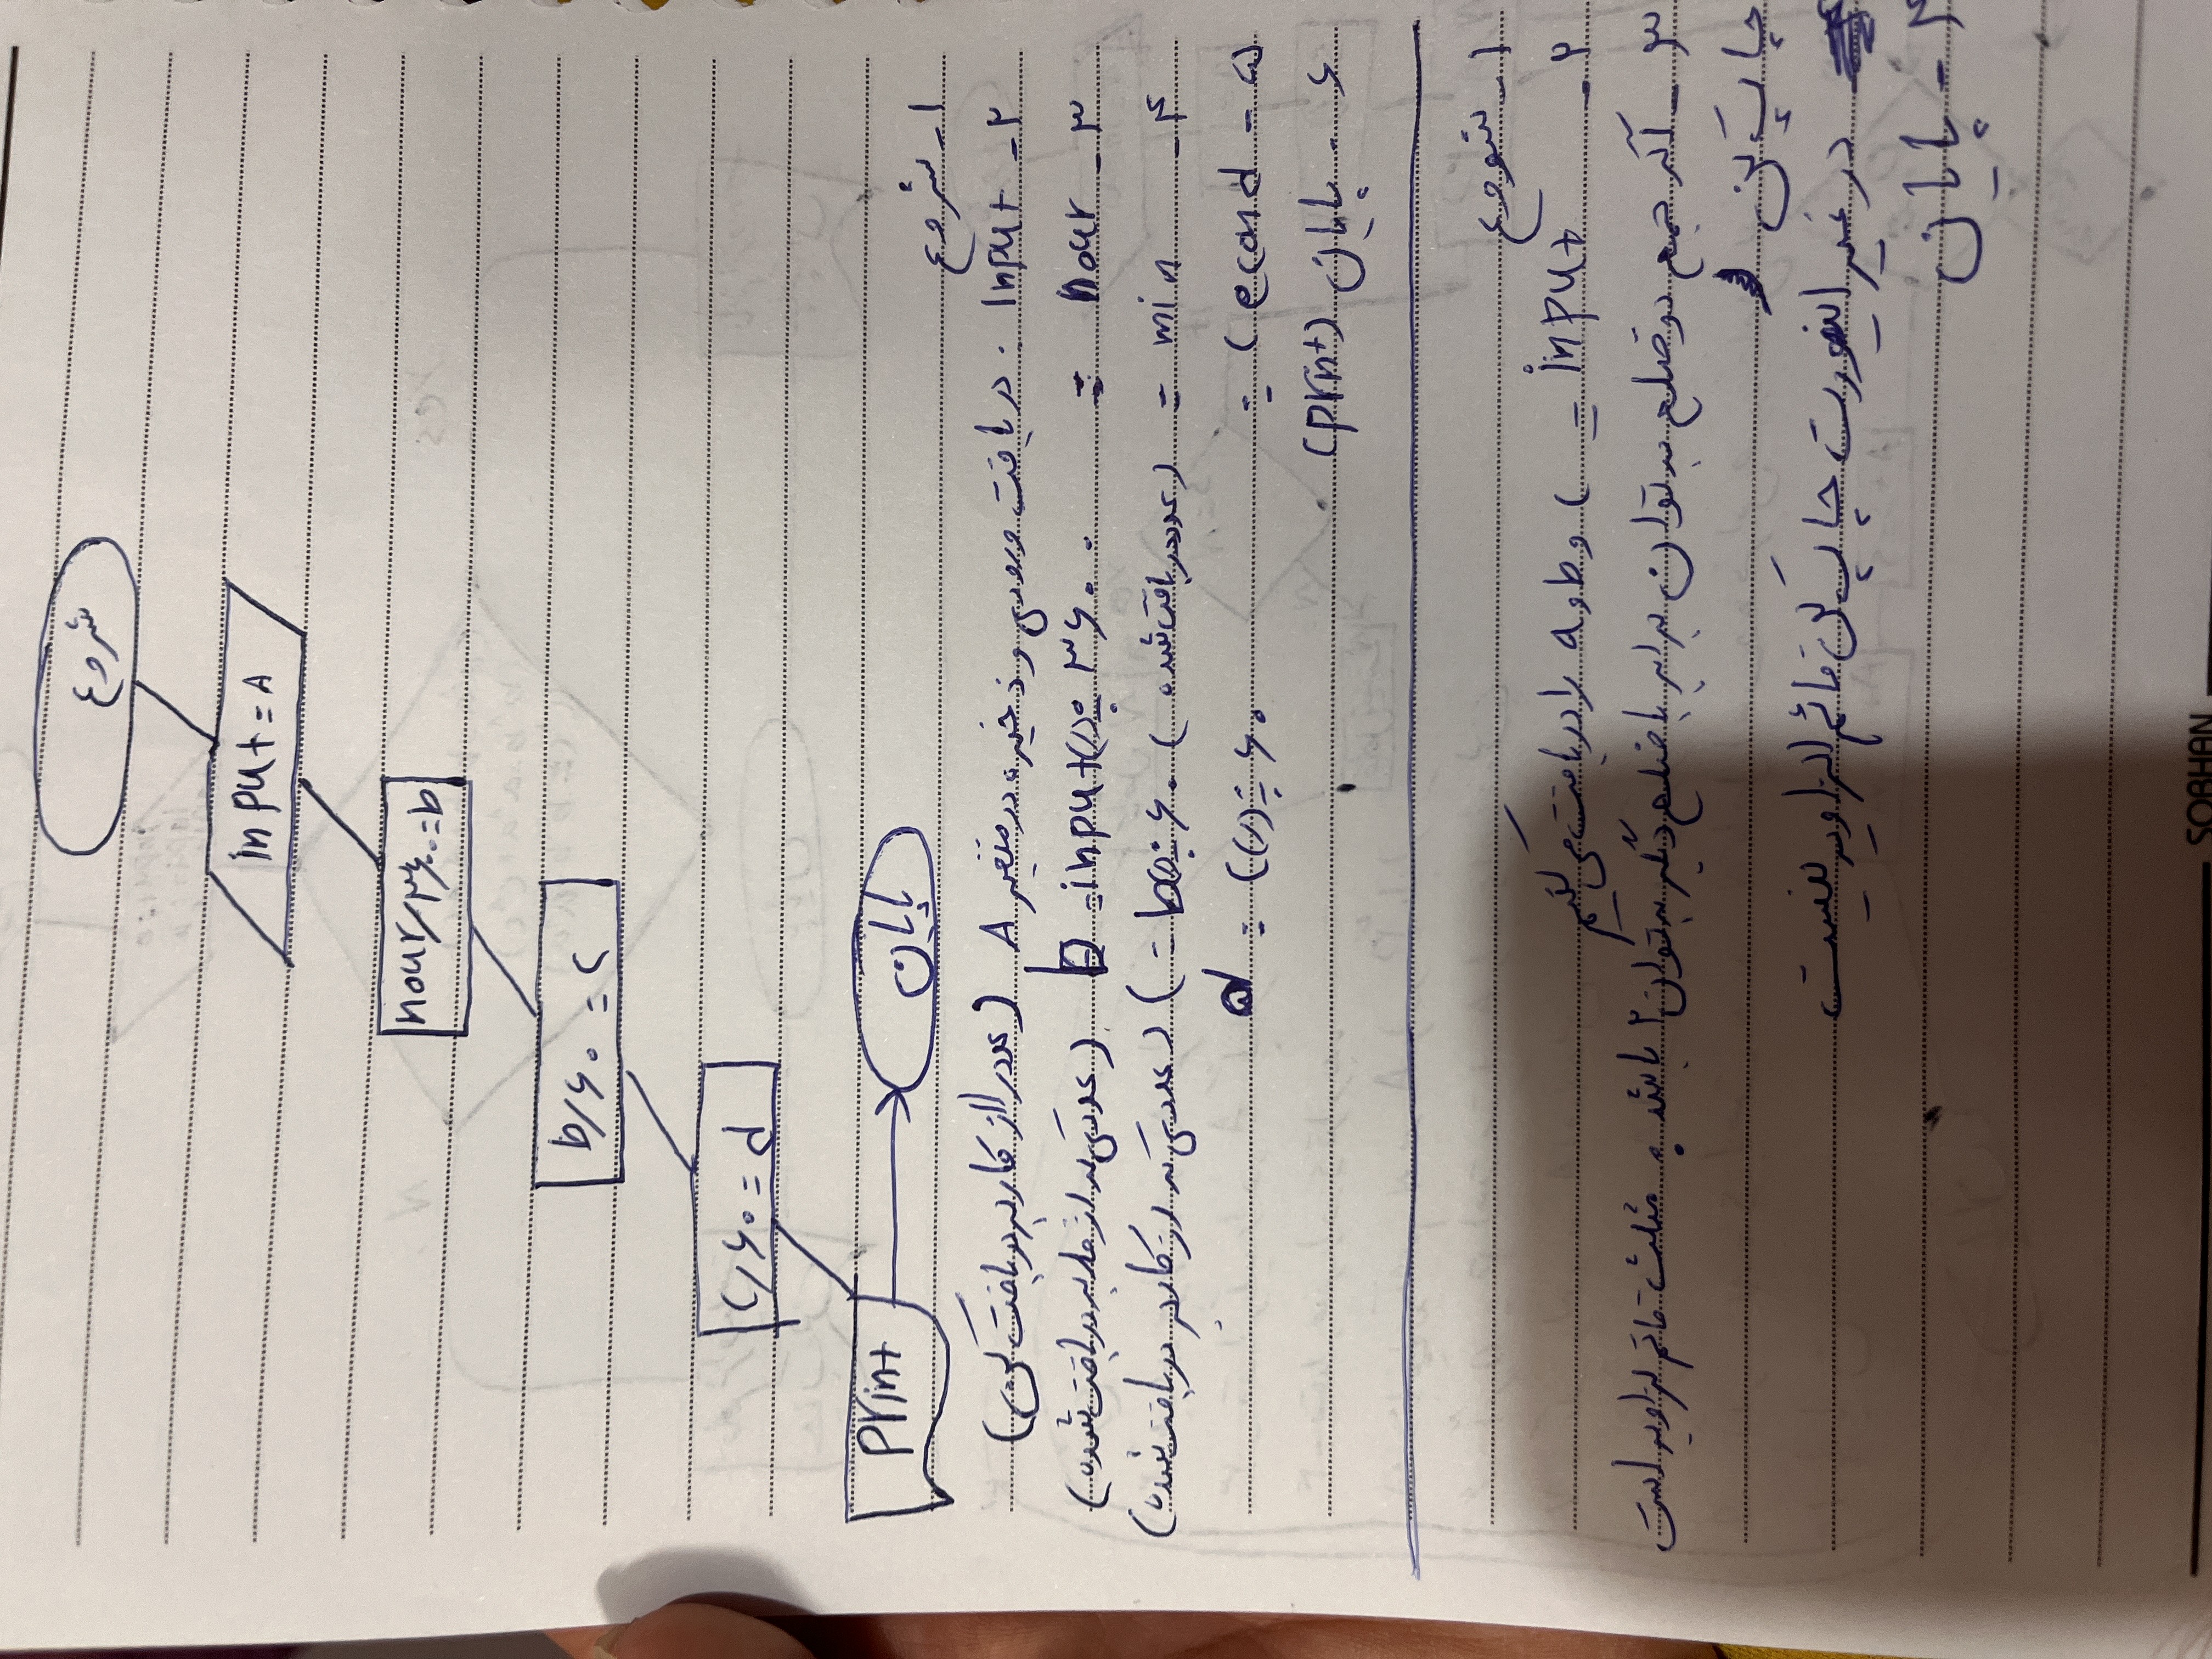 شروع
input = A
hour/۳۶۰۰ = b
b/۶۰ = c
c/۶۰ = d
print
پایان
۱ـ شروع
۲ـ input : دریافت ورودی و ذخیره در متغیر A (عدد را از کاربر دریافت کن)
۳ـ hour = b = input(/) ÷ ۳۶۰۰ (عددی که از کاربر دریافت شده)
۴ـ min = (عدد دریافت شده) b(/) ÷ ۶۰ = c (عددی که از کاربر دریافت شده)
۵ - second = c(/) ÷ ۶۰ = d
۶ - پایان (print)
۱ـ شروع
۲ـ input = c و b و a را دریافت می‌کنیم
۳ـ اگر جمع دو ضلع به توان برابر با ضلع دیگر به توان ۲ باشد ؛ مثلث قائم لزاویه است
چاپ کن
در غیر اینصورت چاپ کن قائم الزاویه نیست
۴ - پایان
SOBHAN